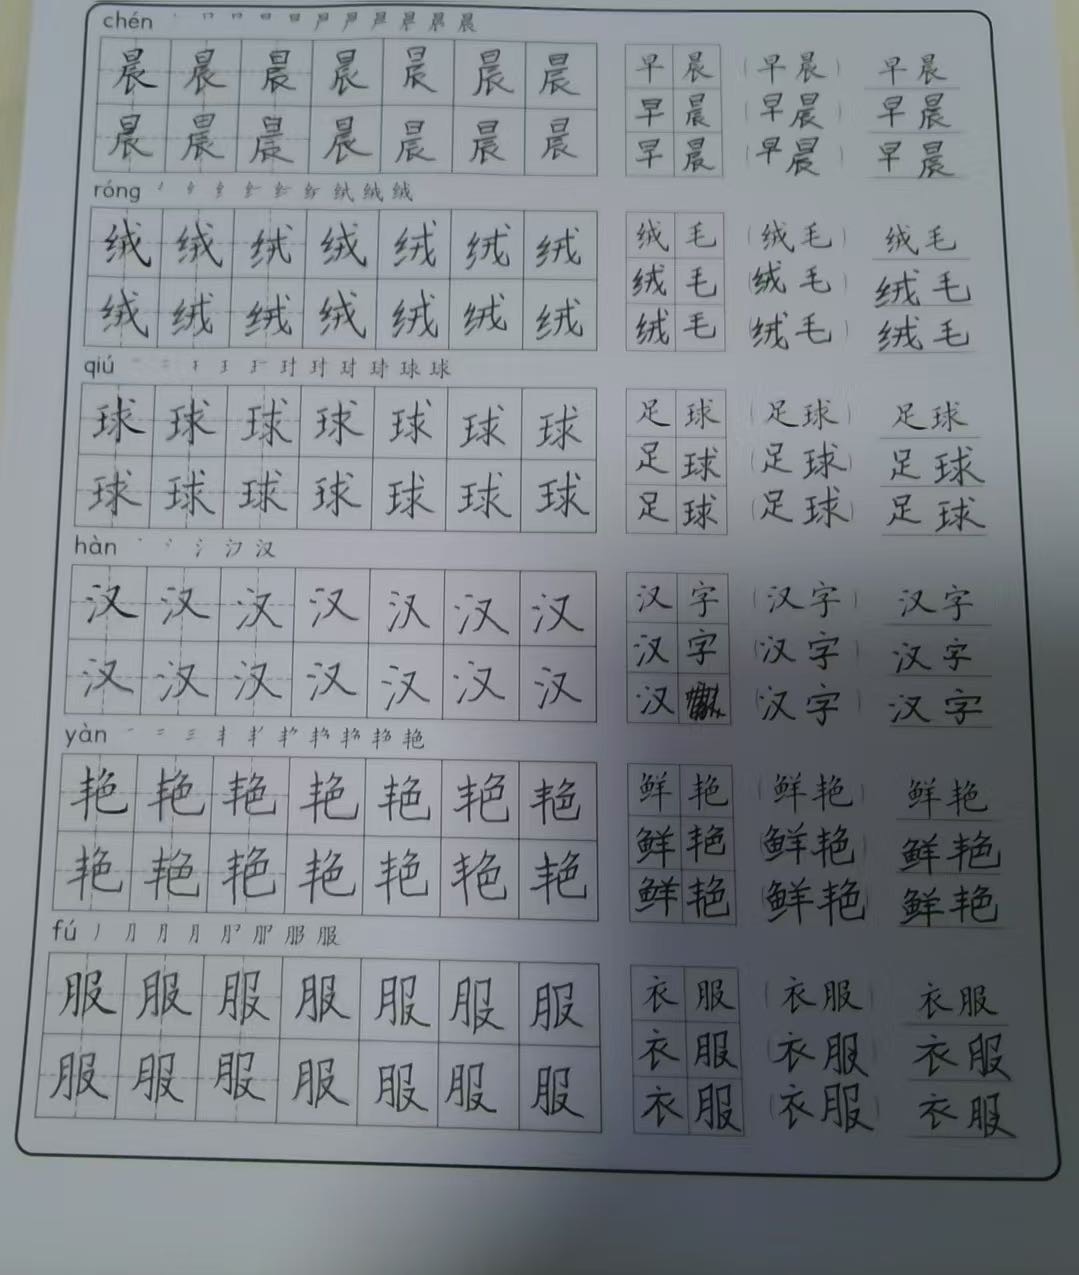 chén 晨
晨 晨 晨 晨 晨 晨 晨 早 晨 (早晨) 早晨
晨 晨 晨 晨 晨 晨 晨 早 晨 (早晨) 早晨
早 晨 (早晨) 早晨
róng 绒 绒 绒
绒 绒 绒 绒 绒 绒 绒 绒 毛 (绒毛) 绒毛
绒 绒 绒 绒 绒 绒 绒 绒 毛 (绒毛) 绒毛
绒 毛 (绒毛) 绒毛
qiú 球 球
球 球 球 球 球 球 球 足 球 (足球) 足球
球 球 球 球 球 球 球 足 球 (足球) 足球
足 球 (足球) 足球
hàn 汉
汉 汉 汉 汉 汉 汉 汉 汉 字 (汉字) 汉字
汉 汉 汉 汉 汉 汉 汉 汉 字 (汉字) 汉字
汉 (汉字) 汉字
yàn 艳
艳 艳 艳 艳 艳 艳 艳 鲜 艳 (鲜艳) 鲜艳
艳 艳 艳 艳 艳 艳 艳 鲜 艳 (鲜艳) 鲜艳
鲜 艳 (鲜艳) 鲜艳
fú 服 服
服 服 服 服 服 服 服 衣 服 (衣服) 衣服
服 服 服 服 服 服 服 衣 服 (衣服) 衣服
衣 服 (衣服) 衣服